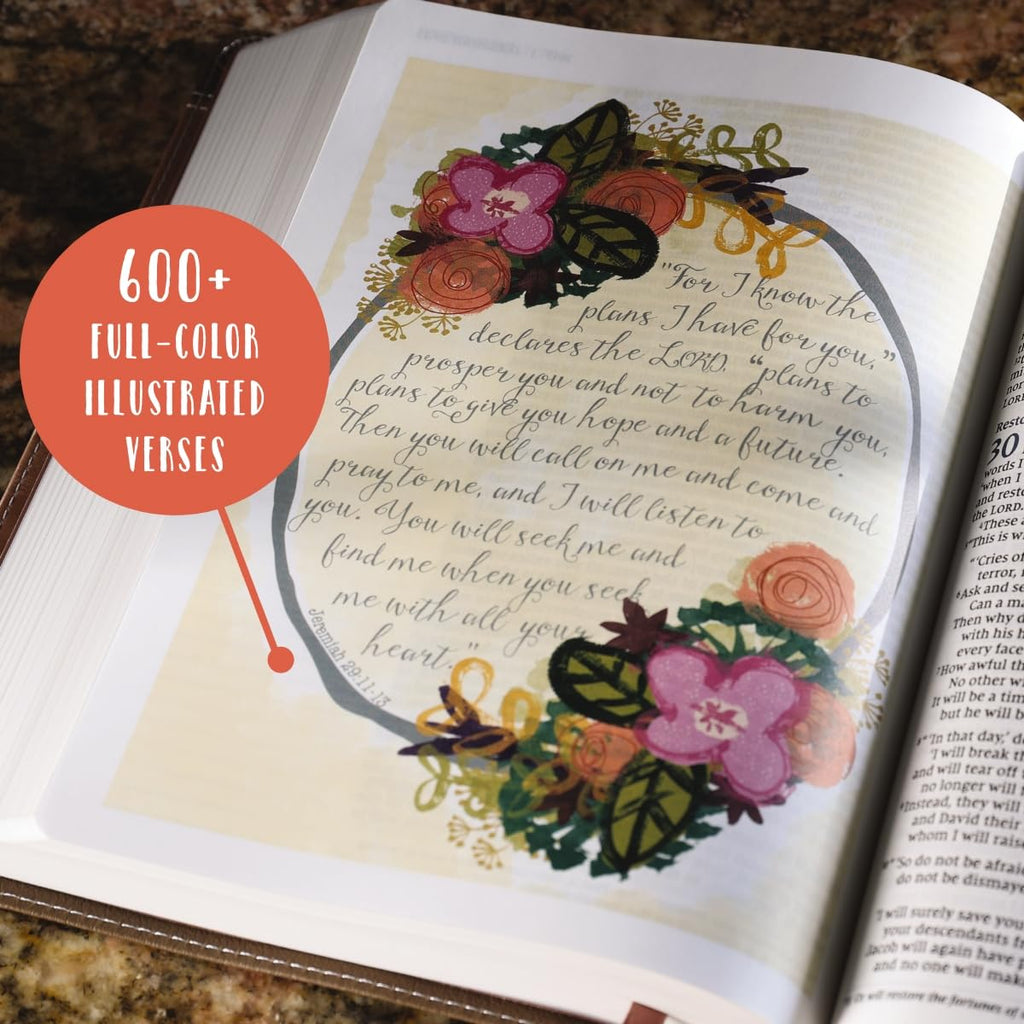 600+
FULL-COLOR
ILLUSTRATED
VERSES
"For I know the
plans I have for you,"
declares the LORD, "plans to
prosper you and not to harm you,
plans to give you hope and a future.
Then you will call on me and come and
pray to me, and I will listen to
you. You will seek me and
find me when you seek
me with all your
heart."
Jeremiah 29:11-13
30
words I
when I
and resto
the LORD.
These a
This is w
'Cries of
terror,
Ask and se
Can a ma
Then why d
with his h
every face
How awful th
No other w
It will be a tim
but he will b
"'In that day,' de
'I will break th
and will tear off
no longer will
Instead, they will
and David their
whom I will raise
"'So do not be afraid
do not be dismaye
'I will surely save you
your descendants fr
Jacob will again have p
and no one will mak
will restore the fortunes of